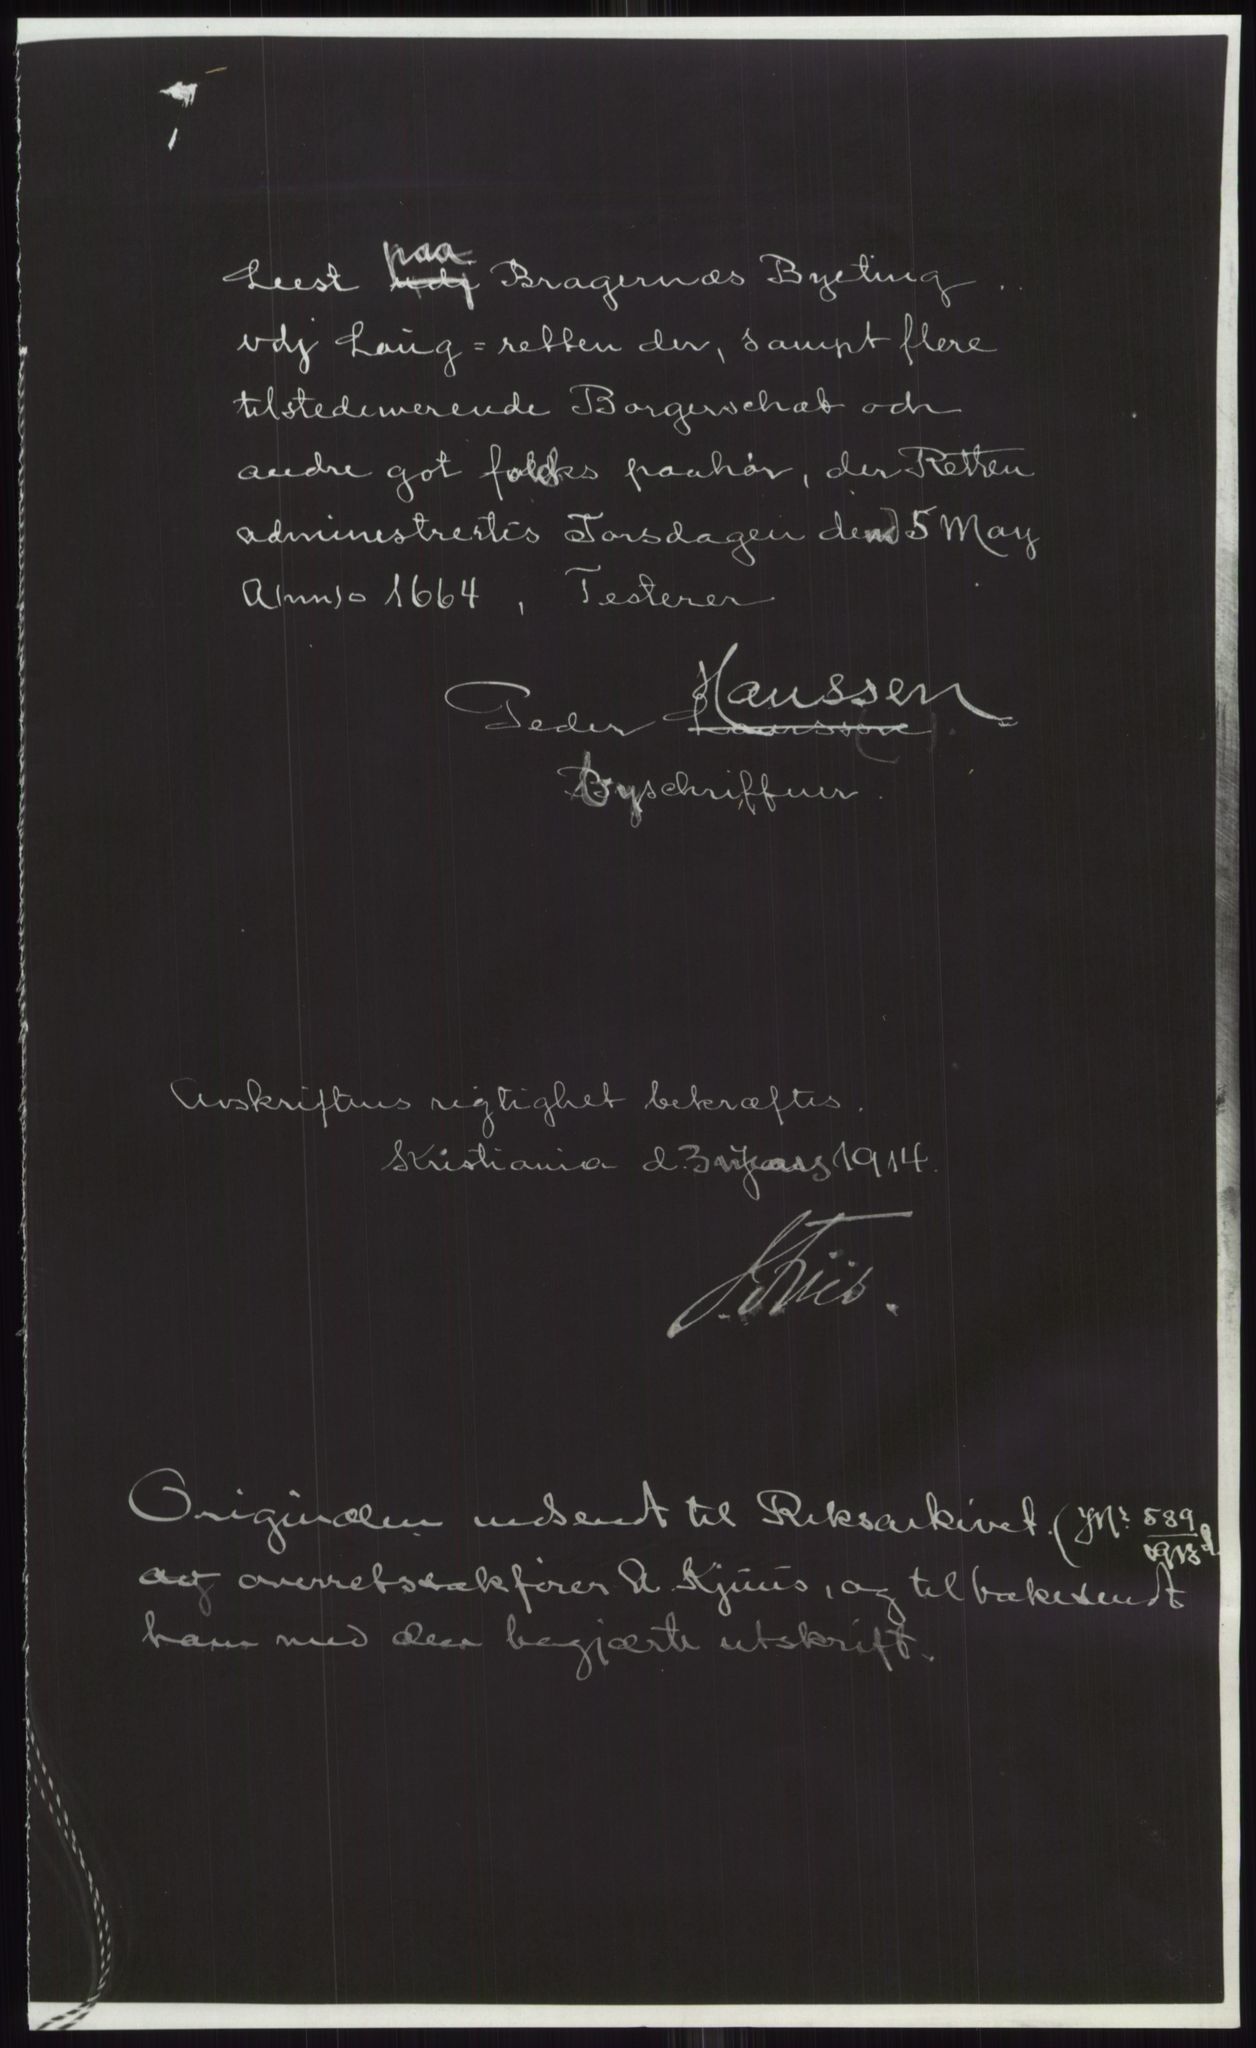 Leest paa Bragernæs Byeting
vdj Laug=retten der, sampt flere
tilstedewerende Borgerschab och
andre got folcks paahør, der Retten
administrertis Torsdagen den 5 May
A(nn)o 1664, Testerer
Peder Hanssen
Byschriffuer.
Avskriftens rigtighet bekræftes.
Kristiania d. 3 1914.
Originalen indsendt til Riksarkivet (JNr. 589/1913)
av overretssakfører A. Kjuus, og tilbakesendt
ham med den begjærte utskrift.